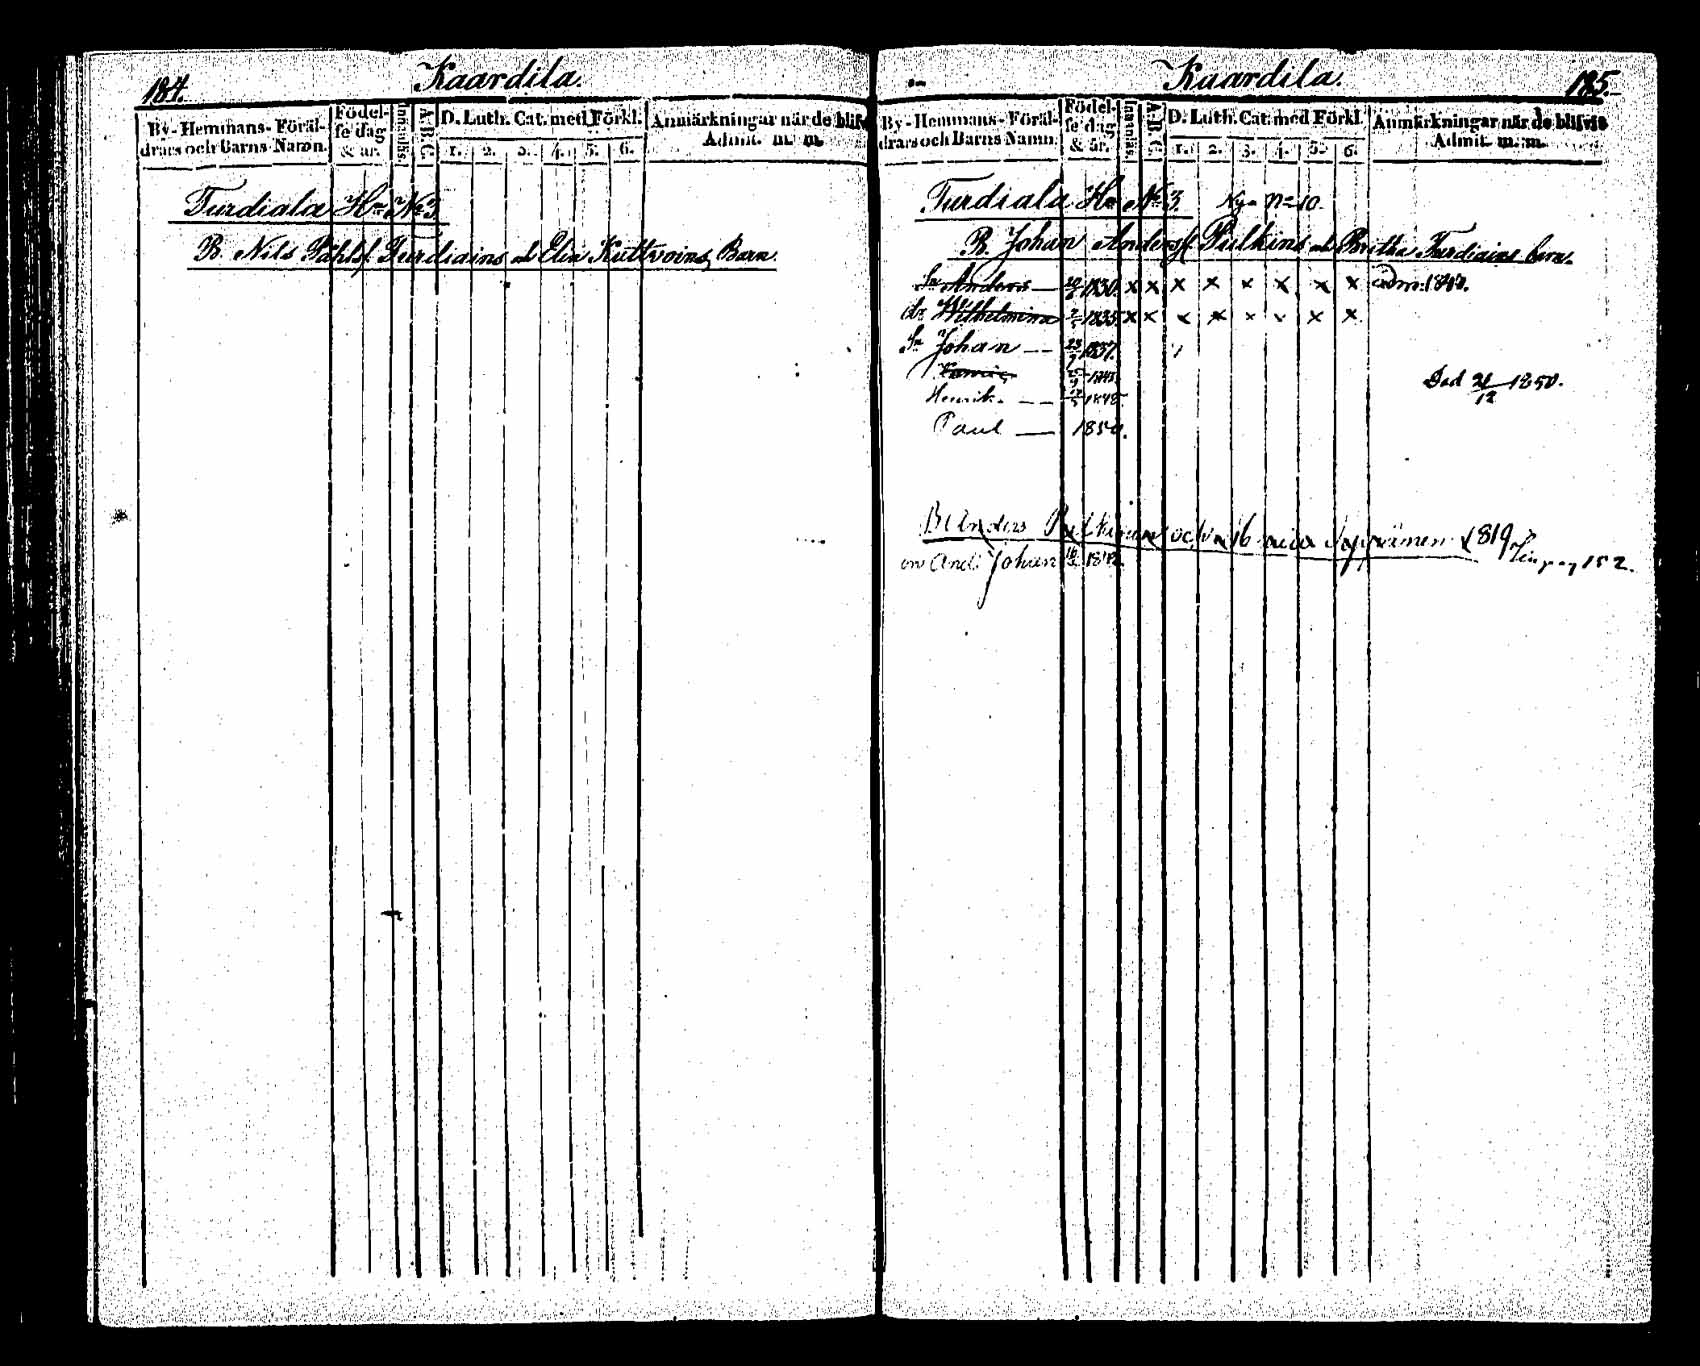 184.
Kaardila.
By-Hemmans-Föräl-
drars och Barns Namn.
Födel-
se dag
& år.
Innanläs.
A. B. C.
D. Luth. Cat. med Förkl.
1. 2. 3. 4. 5. 6.
Anmärkningar när de blifv
Admit. m. m.
Turdiala Hn No 3.
B. Nils Påhls. Turdiains och Elin Kuttvoins Barn.
Kaardila.
185.
By-Hemmans-Föräl-
drars och Barns Namn.
Födel-
se dag
& år.
Innanläs.
A. B. C.
D. Luth. Cat. med Förkl.
1. 2. 3. 4. 5. 6.
Anmärkningar när de blifvit
Admit. m. m.
Turdiala Hn No 3. Nya No 10.
B. Johan Anderss. Pulkins och Britha Turdiains barn.
Sn Anders — 1830. x x x x x x x x adm: 1847.
dr Wilhelmina 1835 x x x x x x x x
Sn Johan — 23 1837.
Död 21/12 1850.
Henrik — 1848
Paul — 1850.
B Anders Pulkinen och 1819
And: Johan 16 pag 152.